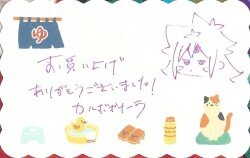 ゆ
お買い上げ
ありがとうございました!
カルボナーラ